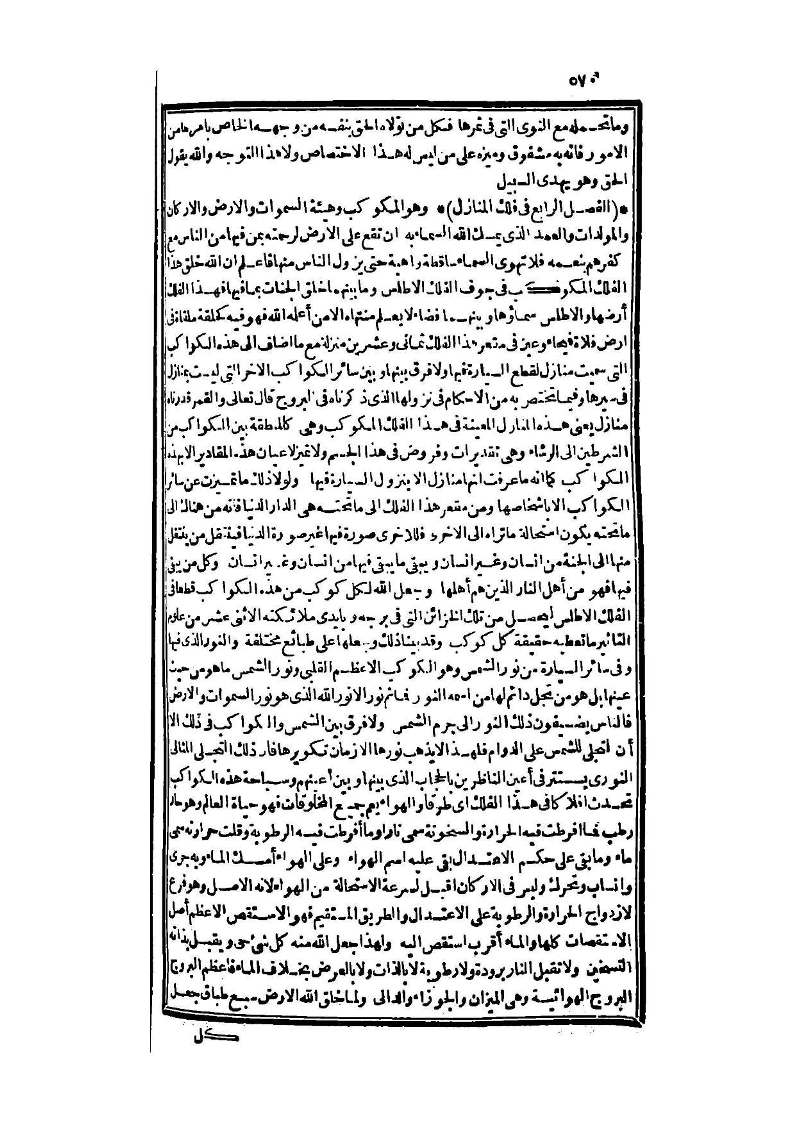 ٥٧٠
وما تحمله مع النوى التي في ثمرها فكل من تولاه الحق بنفسه من وجهه الخاص بأمر ما من
الامور فانه به مشغوف وميزه على من ليس له هذا الاختصاص ولا هذا التوجه والله يقول
الحق وهو يهدى السبيل
*(الفصل الرابع في فلك المنازل)* وهو المكوكب وهيئة السموات والارض والاركان
والمولدات والعمد الذي يمسك الله السماء به ان تقع على الارض لرحمته بمن فيها من الناس مع
كفرهم بنعمه فلا تهوى السماء ساقطة واهية حتى يزول الناس منها فاعلم ان الله خلق هذا
الفلك المكوكب في جوف الفلك الاطلس وما بينهما خلق الجنات بما فيها فهذا الفلك
أرضها والاطلس سماؤها وبينهما فضاء لا يعلم منتهاه الا من أعلمه الله فهو فيه كحلقة ملقاة في
ارض فلاة فيحاء وعين في مقعر هذا الفلك ثمانى وعشرين منزلة مع ما اضاف الى هذه الكواكب
التي سميت منازل لقطع السيارة فيها ولا فرق بينها وبين سائر الكواكب الاخر التي ليست بمنازل
في سيرها وفيما تختص به من الاحكام في نزولها الذي ذكرناه في البروج قال تعالى والقمر قدرناه
منازل يعنى هذه المنازل المعينة في هذا الفلك المكوكب وهي كالمنطقة بين الكواكب من
الشرطين الى الرشاء وهي تقديرات وفروض في هذا الجسم ولا تتميز لاعيان هذه المقادير الا بهذه
الكواكب كما انه ما عرفت انها منازل الا بنزول السيارة فيها ولولا ذلك ما تميزت عن سائر
الكواكب الا باشخاصها ومن مقعر هذا الفلك الى ما تحته هي الدار الدنيا فانه من هناك الى
ما تحته يكون استحالة ما تراه الى الاخرى فللاخرى صورة فيها غير صورة الدنيا فينتقل من ينتقل
منها الى الجنة من انسان وغير انسان ويبقى ما يبقى فيها من انسان وغير انسان وكل من يبقى
فيها فهو من أهل النار الذين هم أهلها وجعل الله لكل كوكب من هذه الكواكب قطعا في
الفلك الاطلس ليحصل من تلك الخزائن التي في بروجه وبايدى ملائكته الاثنى عشر من علوم
التاثير ما تعطيه حقيقة كل كوكب وقد بينا ذلك وجعلها على طبائع مختلفة والنور الذي فيها
وفي سائر السيارة من نور الشمس وهو الكوكب الاعظم القلبي ونور الشمس ما هو من حيث
عينها بل هو من تجل دائم لها من اسمه النور فما ثم نور الا نور الله الذي هو نور السموات والارض
فالناس يضيفون ذلك النور الى جرم الشمس ولا فرق بين الشمس والكواكب في ذلك الا
أن التجلى للشمس على الدوام فلهذا لا يذهب نورها الا زمان تكويرها فان ذلك التجلى المثالى
النورى يستتر في أعين الناظرين بالحجاب الذي بينها وبين أعينهم وسباحة هذه الكواكب
تحدث افلاكا في هذا الفلك اى طرقا والهواء يعم جميع المخلوقات فهو حياة العالم وهو حار
رطب فما افرطت فيه الحرارة والسخونة سمى نارا وما أفرطت فيه الرطوبة وقلت حرارته سمى
ماء وما بقى على حكم الاعتدال بقى عليه اسم الهواء وعلى الهواء أمسك الماء وبه جرى
وانساب وتحرك وليس في الاركان اقبل لسرعة الاستحالة من الهواء لانه الاصل وهو فرع
لازدواج الحرارة والرطوبة على الاعتدال والطريق المستقيم فهو الاستقص الاعظم أصل
الاستقصات كلها والماء أقرب استقص اليه ولهذا جعل الله منه كل شئ حى ويقبل بذاته
التسخين ولا تقبل النار برودة ولا رطوبة لا بالذات ولا بالعرض بخلاف الماء فاعظم البروج
البروج الهوائية وهي الميزان والجوزاء والدالى ولما خلق الله الارض سبع طباق جعل
كل